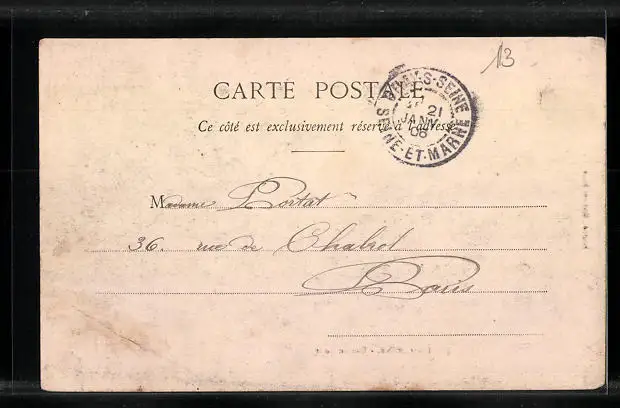 13
CARTE POSTALE
Ce côté est exclusivement réservé à l'adresse
S-SEINE
21
JANV
06
SEINE-ET-MARNE
Madame Portat
36. rue de Chabrol
Paris